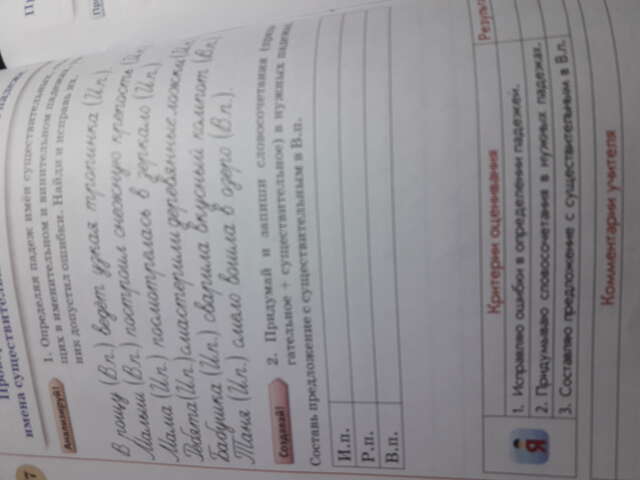 имена существительные
7
Анализируй!
1. Определяя падеж имён существительных,
щих в именительном и винительном падежах,
ник допустил ошибки. Найди и исправь их.
В рощу (В.п.) ведет узкая тропинка (И.п.).
Малыши (В.п.) построили снежную крепость (И.п.
Мама (И.п.) посмотрелась в зеркало (И.п.)
Ребята (И.п.) смастерили деревянные ложки (И.п.
Бабушка (И.п.) сварила вкусный компот (В.п.).
Таня (И.п.) смело вошла в озеро (В.п.).
Создавай!
2. Придумай и запиши словосочетания (прила-
гательное + существительное) в нужных падежах.
Составь предложение с существительным в В.п.
И.п.
Р.п.
В.п.
Я
Критерии оценивания
Результ
1. Исправляю ошибки в определении падежей.
2. Придумываю словосочетания в нужных падежах.
3. Составляю предложение с существительным в В.п.
Комментарии учителя